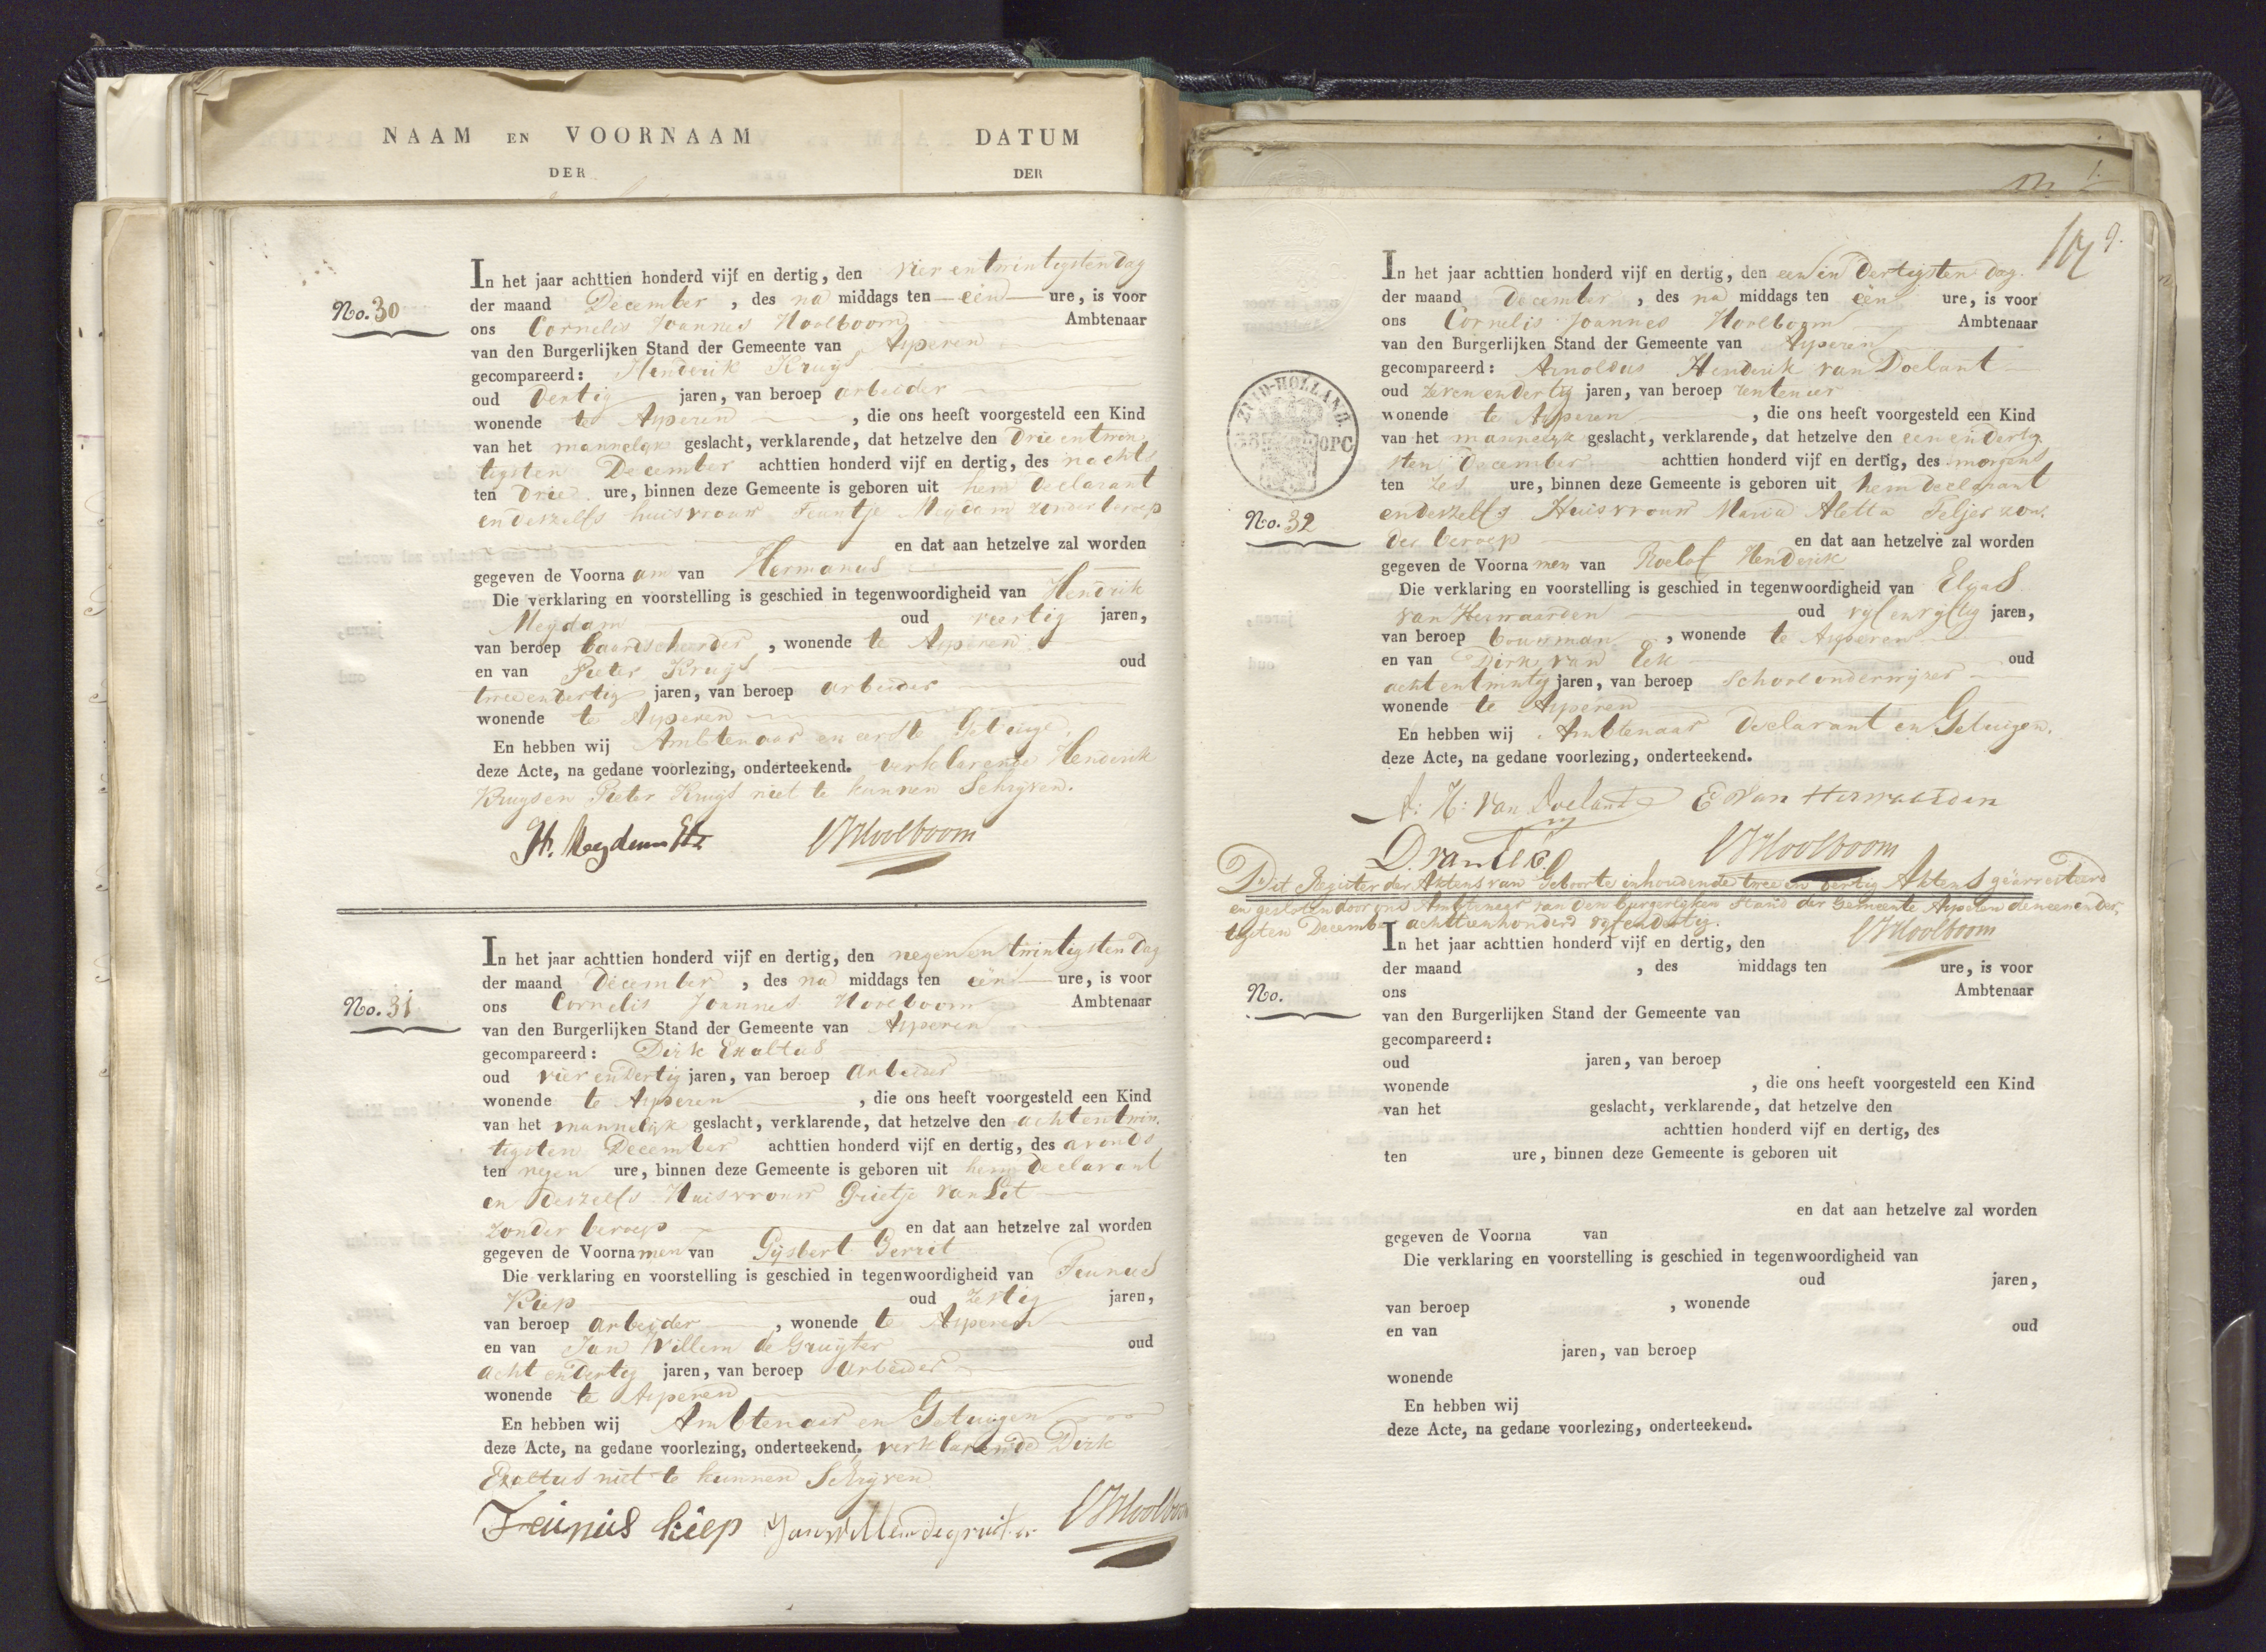 NAAM EN VOORNAAM
DER
DATUM
DER
No. 30
In het jaar achttien honderd vijf en dertig, den vier en twintigsten dag
der maand December, des na middags ten een ure, is voor
ons Cornelis Joannes Hoolboom Ambtenaar
van den Burgerlijken Stand der Gemeente van Asperen
gecompareerd: Henderik Kruijs
oud dertig jaren, van beroep arbeider
wonende te Asperen, die ons heeft voorgesteld een Kind
van het mannelijk geslacht, verklarende, dat hetzelve den drie entwin
tigsten December achttien honderd vijf en dertig, des nachts
ten drie ure, binnen deze Gemeente is geboren uit hem declarant
en deszelfs huisvrouw Teuntje Meijdam zonder beroep
en dat aan hetzelve zal worden
gegeven de Voorna am van Hermanus
Die verklaring en voorstelling is geschied in tegenwoordigheid van Hendrik
Meijdam oud veertig jaren,
van beroep baardscheerder, wonende te Asperen
en van Pieter Kruijs oud
twee en dertig jaren, van beroep arbeider
wonende te Asperen
En hebben wij Ambtenaar en eerste Getuige,
deze Acte, na gedane voorlezing, onderteekend. verklarende Henderik
Kruijs en Pieter Kruijs niet te kunnen Schrijven.
H. Meydam
CJHoolboom
No. 31
In het jaar achttien honderd vijf en dertig, den negen en twintigsten dag
der maand December, des na middags ten één ure, is voor
ons Cornelis Joannes Hoolboom Ambtenaar
van den Burgerlijken Stand der Gemeente van Asperen
gecompareerd: Dirk Exaltus
oud vier en dertig jaren, van beroep arbeider
wonende te Asperen, die ons heeft voorgesteld een Kind
van het mannelijk geslacht, verklarende, dat hetzelve den acht en twin
tigsten December achttien honderd vijf en dertig, des avonds
ten negen ure, binnen deze Gemeente is geboren uit hem declarant
en deszelfs Huisvrouw Grietje van Sit
zonder beroep en dat aan hetzelve zal worden
gegeven de Voorna men van Gijsbert Gerrit
Die verklaring en voorstelling is geschied in tegenwoordigheid van Teunus
Kiep oud zestig jaren,
van beroep arbeider, wonende te Asperen
en van Jan Willem de Gruijter oud
acht en dertig jaren, van beroep arbeider
wonende te Asperen
En hebben wij Ambtenaar en Getuigen
deze Acte, na gedane voorlezing, onderteekend. verklarende Dirk
Exaltus niet te kunnen Schrijven
Teunus kiep Jan Willem de gruiter CJHoolboom
ZUID-HOLLAND.
OPC
No. 32
In het jaar achttien honderd vijf en dertig, den een en dertigsten dag.
der maand December, des na middags ten één ure, is voor
ons Cornelis Joannes Hoolboom Ambtenaar
van den Burgerlijken Stand der Gemeente van Asperen
gecompareerd: Arnoldus Henderik van Doelant
oud zeven en dertig jaren, van beroep rentenier
wonende te Asperen, die ons heeft voorgesteld een Kind
van het mannelijk geslacht, verklarende, dat hetzelve den een en dertig
sten December achttien honderd vijf en dertig, des morgens
ten zes ure, binnen deze Gemeente is geboren uit hem declarant
en deszelfs Huisvrouw Maria Aletta Teljer zon
der beroep en dat aan hetzelve zal worden
gegeven de Voorna men van Roelof Henderik
Die verklaring en voorstelling is geschied in tegenwoordigheid van Elyas
van Herwaarden oud vijf en vijftig jaren,
van beroep bouwman, wonende te Asperen
en van Dirk van Eck oud
acht en twintig jaren, van beroep Schoolonderwijzer
wonende te Asperen
En hebben wij Ambtenaar Declarant en Getuigen.
deze Acte, na gedane voorlezing, onderteekend.
A: H: van Doelant E van Herwaarden
D. van Eck CJHoolboom
Dit Register der Aktens van Geboorte inhoudende twee en dertig Aktens gearresteerd
en gesloten door ons Ambtenaar van den burgerlijken Stand der Gemeente Asperen den een en der
tigsten December achttienhonderd vijf en dertig.
CJHoolboom
No.
In het jaar achttien honderd vijf en dertig, den
der maand , des middags ten ure, is voor
ons Ambtenaar
van den Burgerlijken Stand der Gemeente van
gecompareerd:
oud jaren, van beroep
wonende , die ons heeft voorgesteld een Kind
van het geslacht, verklarende, dat hetzelve den
achttien honderd vijf en dertig, des
ten ure, binnen deze Gemeente is geboren uit
en dat aan hetzelve zal worden
gegeven de Voorna van
Die verklaring en voorstelling is geschied in tegenwoordigheid van
oud jaren,
van beroep , wonende
en van oud
jaren, van beroep
wonende
En hebben wij
deze Acte, na gedane voorlezing, onderteekend.